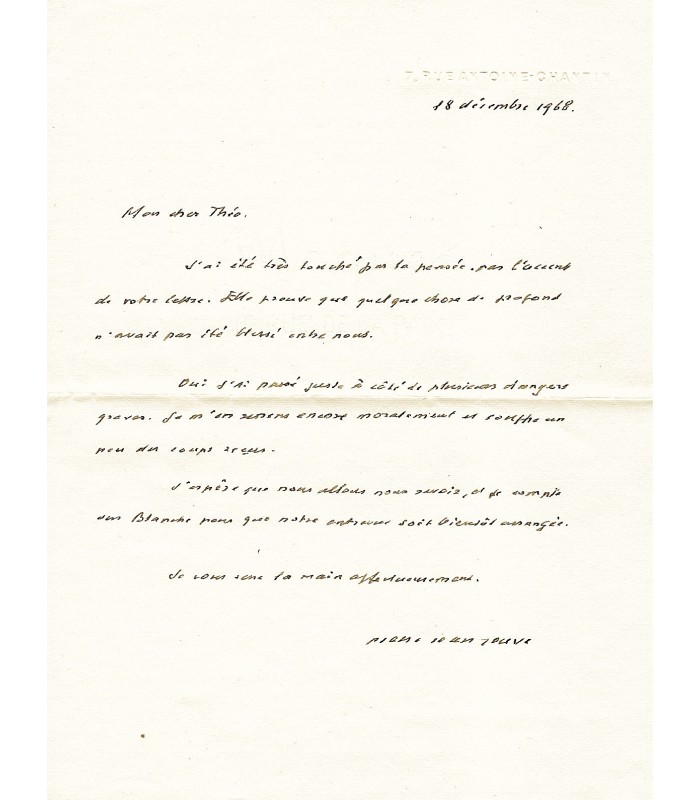 7, RUE ANTOINE-CHANTIN
18 décembre 1968.
Mon cher Théo.
J'ai été très touché par la pensée, par l'accent
de votre lettre. Elle prouve que quelque chose de profond
n'avait pas été blessé entre nous.
Oui j'ai passé juste à côté de plusieurs dangers
graves. Je m'en ressens encore moralement et souffre un
peu des coups reçus.
J'espère que nous allons nous revoir, et je compte
sur Blanche pour que notre entrevue soit bientôt arrangée.
Je vous serre la main affectueusement.
Pierre Jean Jouve